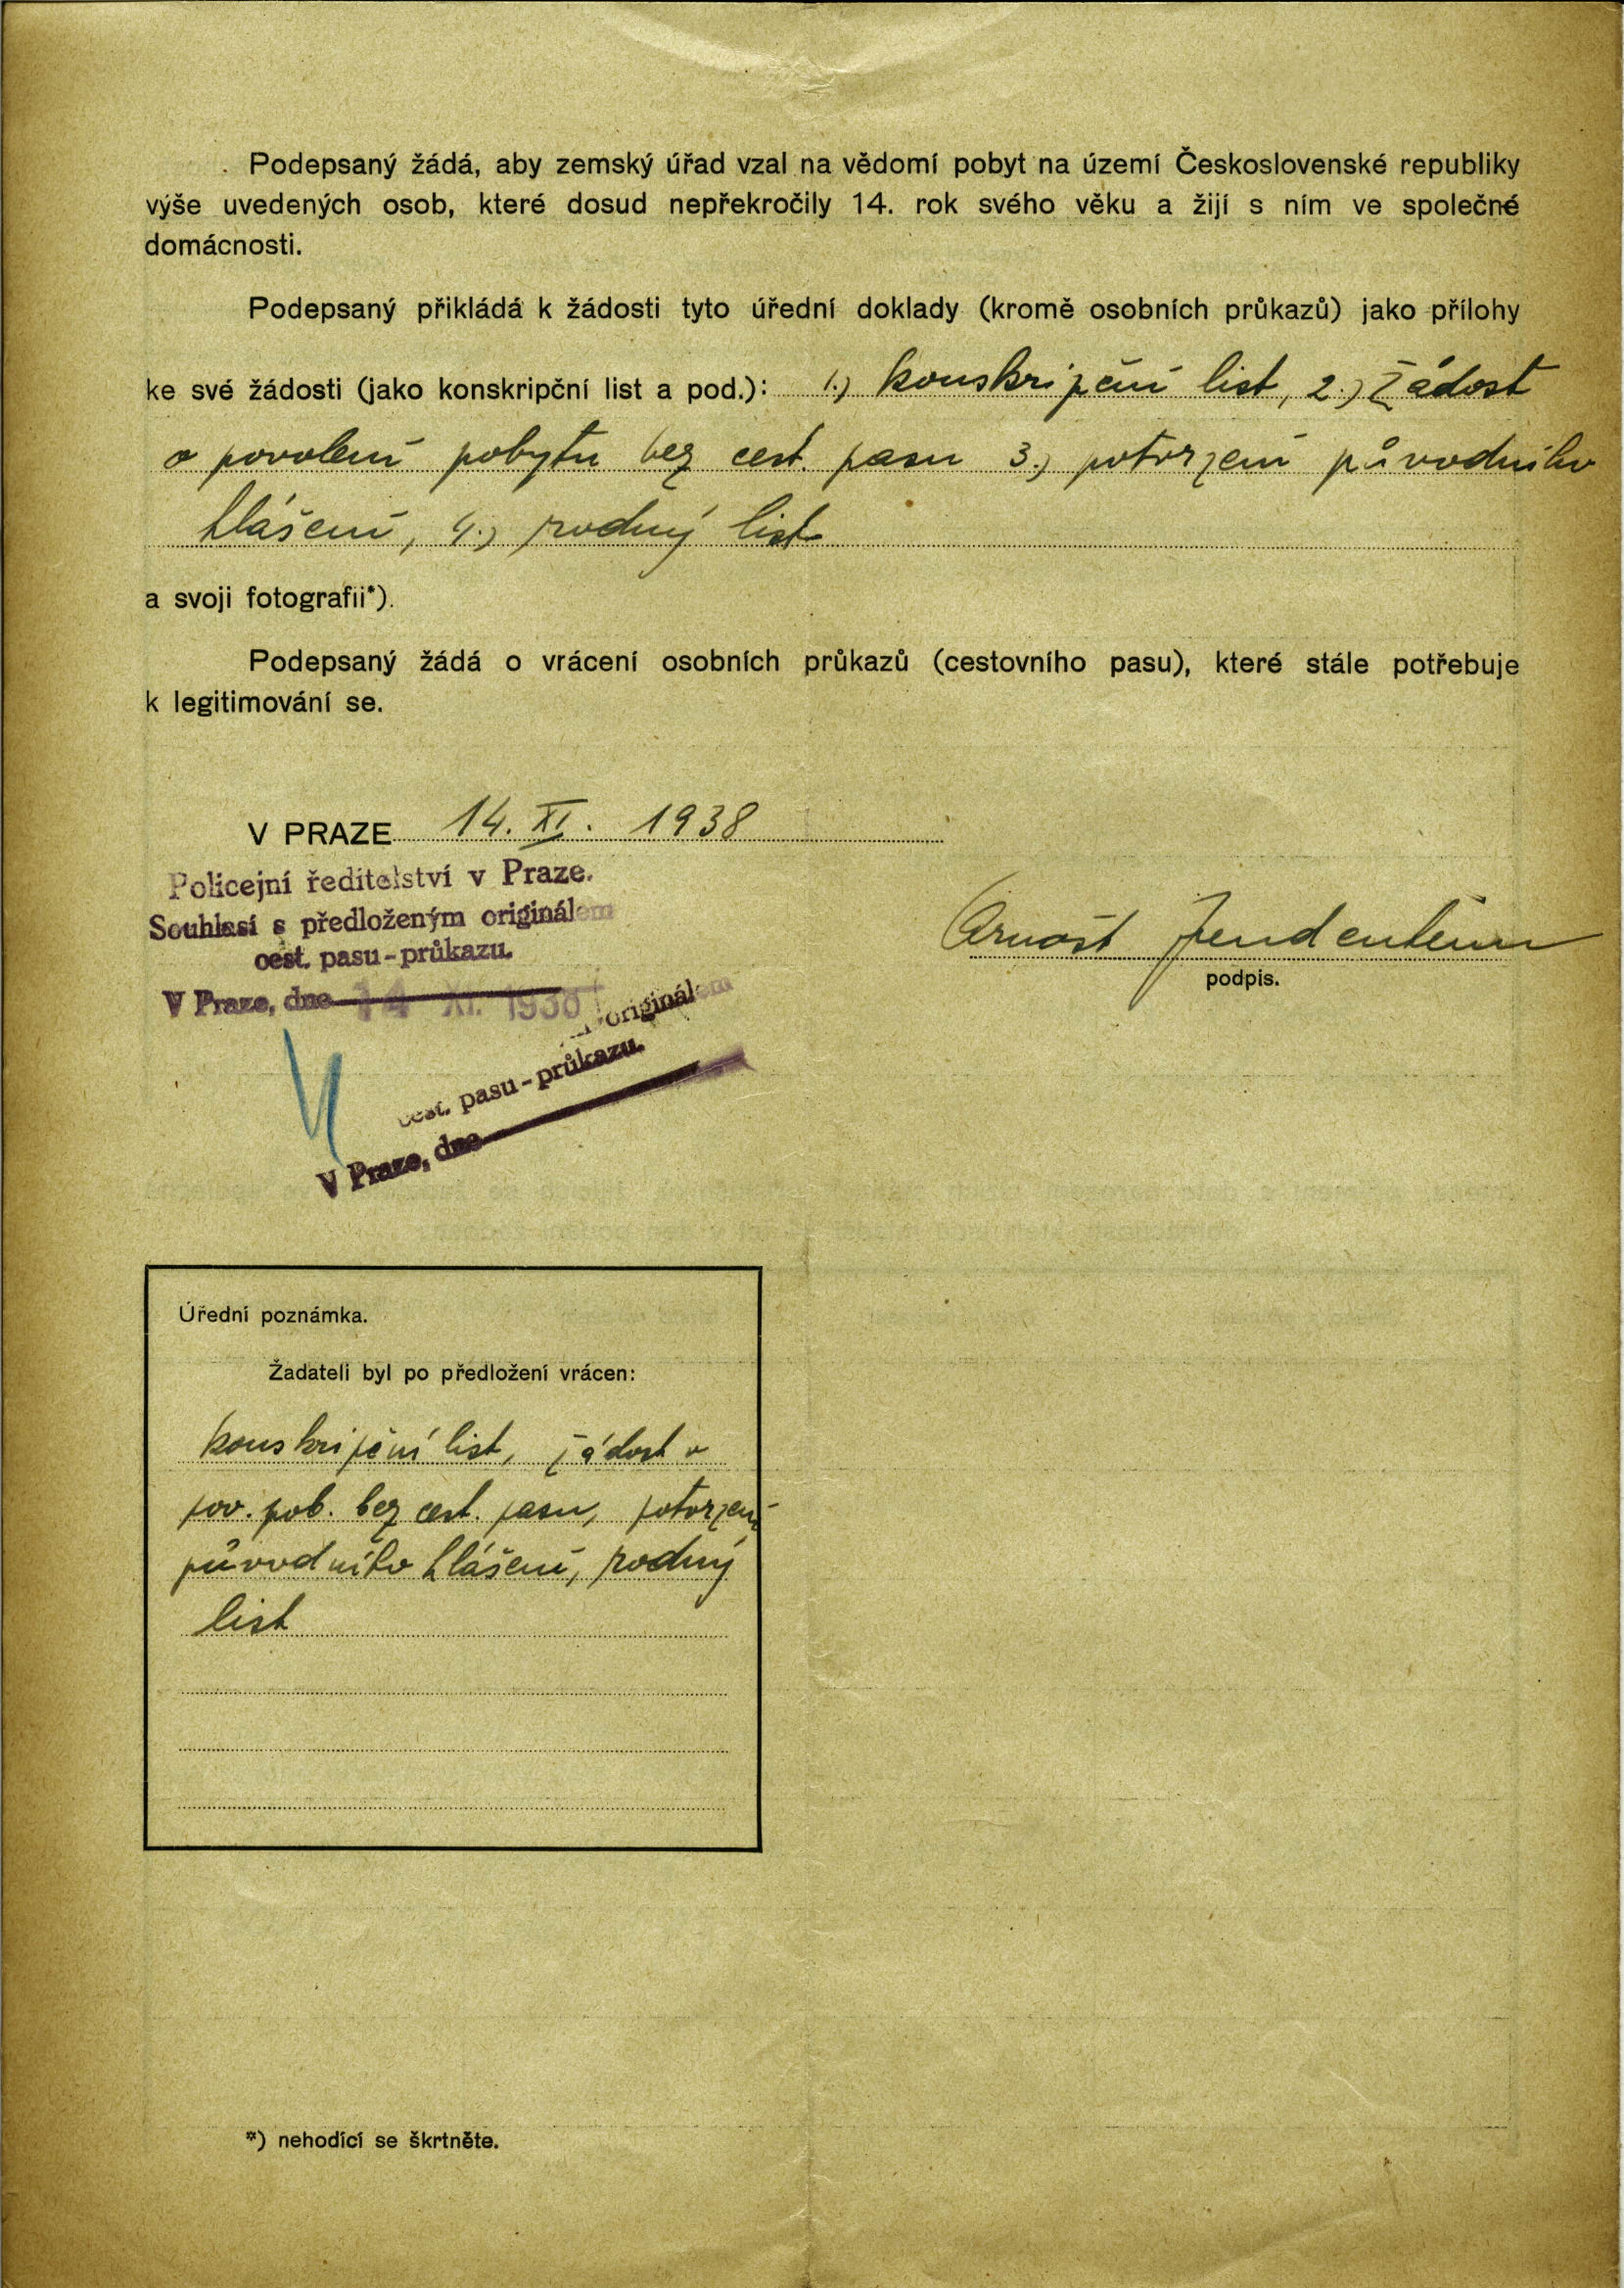 Podepsaný žádá, aby zemský úřad vzal na vědomí pobyt na území Československé republiky
výše uvedených osob, které dosud nepřekročily 14. rok svého věku a žijí s ním ve společné
domácnosti.
Podepsaný přikládá k žádosti tyto úřední doklady (kromě osobních průkazů) jako přílohy
ke své žádosti (jako konskripční list a pod.): 1.) konskripční list, 2.) žádost
o povolení pobytu bez cest. pasu 3.) potvrzení původního
hlášení, 4.) rodný list
a svoji fotografii*).
Podepsaný žádá o vrácení osobních průkazů (cestovního pasu), které stále potřebuje
k legitimování se.
V PRAZE 14. XI. 1938
Policejní ředitelství v Praze.
Souhlasí s předloženým originálem
cest. pasu-průkazu.
V Praze, dne 14 XI. 1938
Arnošt
podpis.
originálem
cest. pasu-průkazu.
V Praze, dne
Úřední poznámka.
Žadateli byl po předložení vrácen:
konskripční list, žádost o
pov. pob. bez cest. pasu, potvrzení
původního hlášení, rodný
list
*) nehodící se škrtněte.